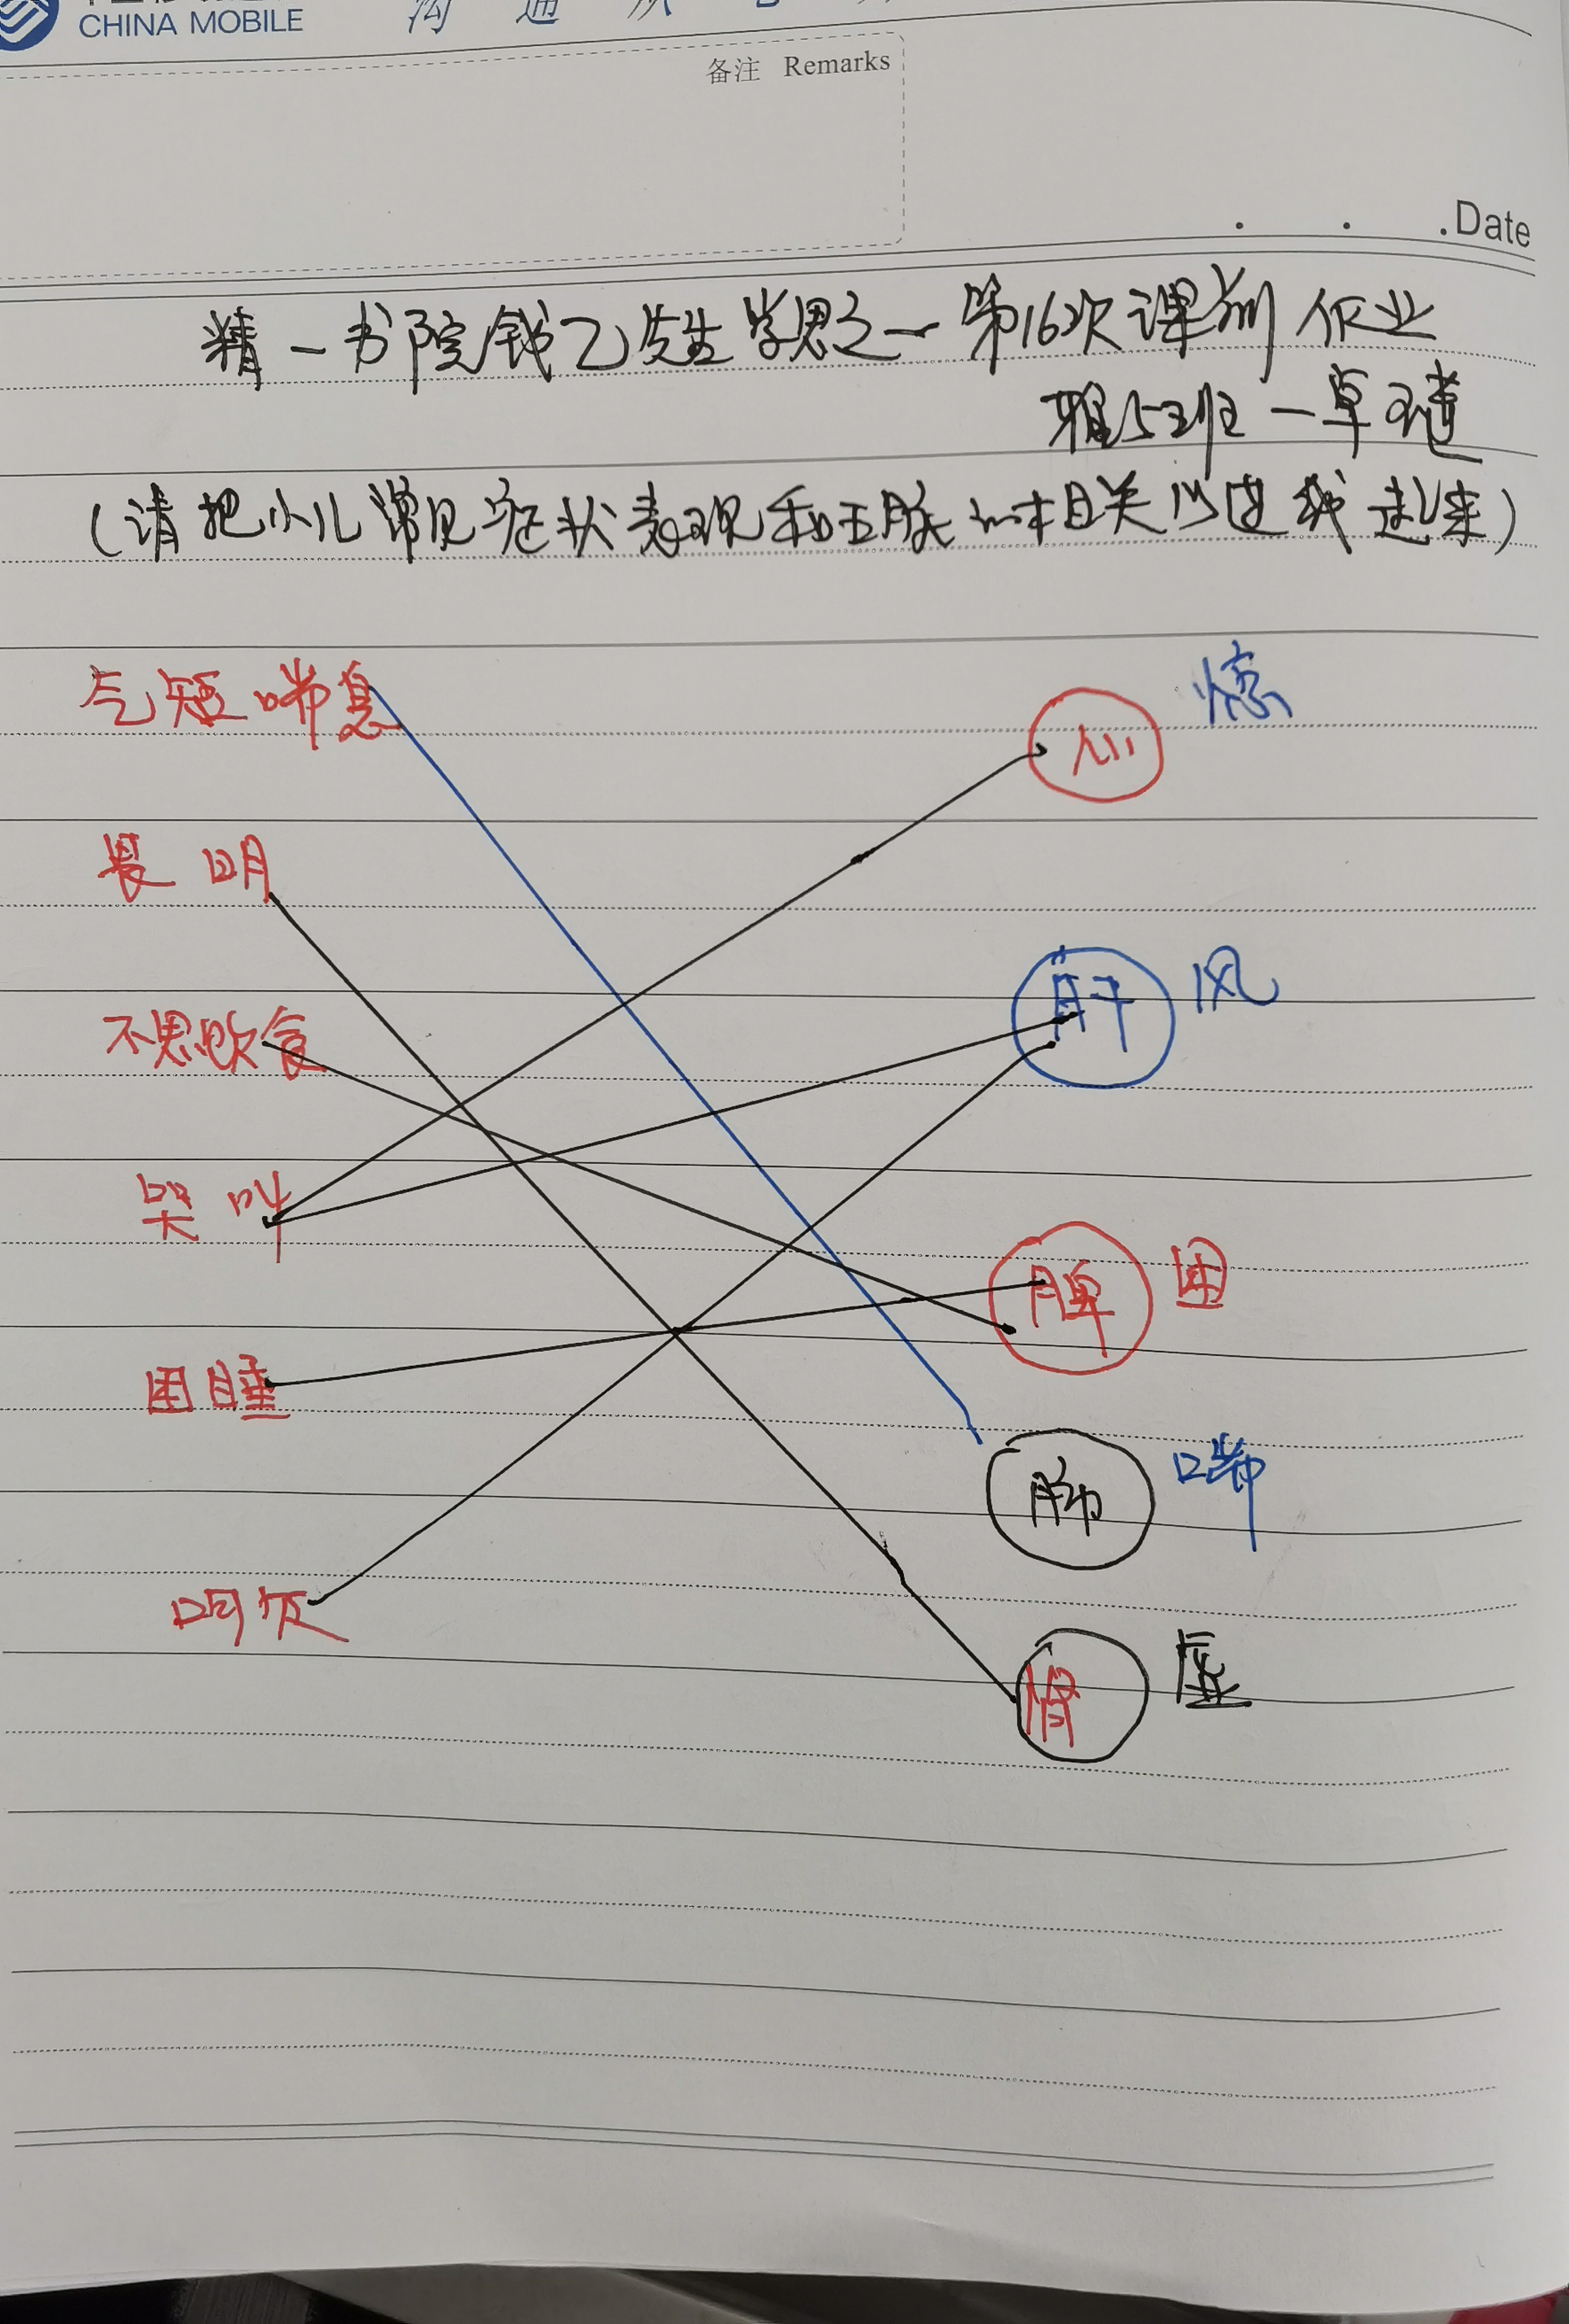 CHINA MOBILE 沟 通 从
备注 Remarks
Date
精一书院钱乙先生学思之一第16次课前作业
班一卓
(请把小儿常见症状表现和五脏的相关以连线起来)
气短喘息
心 惊
畏明
肝 风
不思饮食
哭叫
脾 困
困睡
肺 喘
呵欠
肾 虚